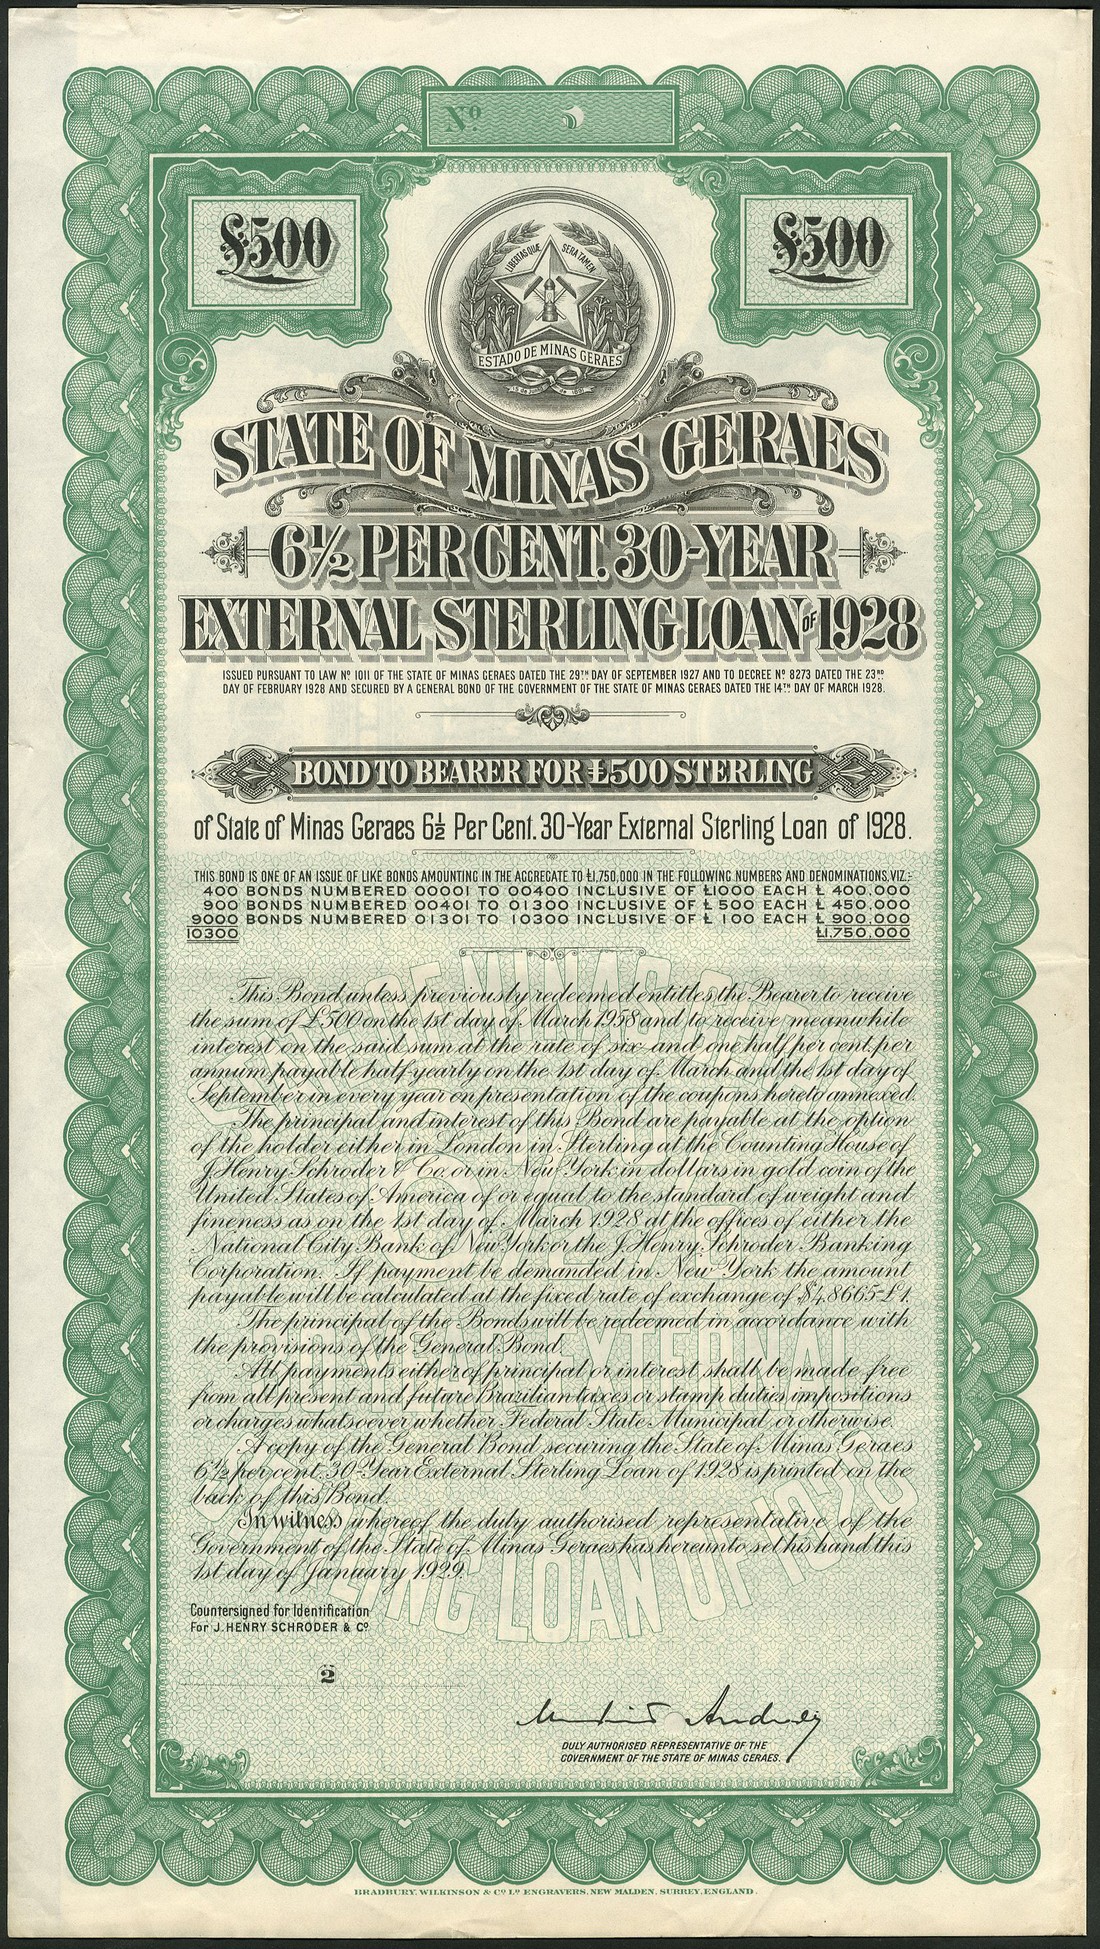 Nº
£500
£500
LIBERTAS QUÆ SERA TAMEN
ESTADO DE MINAS GERAES
STATE OF MINAS GERAES
6½ PER CENT. 30-YEAR
EXTERNAL STERLING LOAN OF 1928
ISSUED PURSUANT TO LAW Nº 1011 OF THE STATE OF MINAS GERAES DATED THE 29TH DAY OF SEPTEMBER 1927 AND TO DECREE Nº 8273 DATED THE 23RD
DAY OF FEBRUARY 1928 AND SECURED BY A GENERAL BOND OF THE GOVERNMENT OF THE STATE OF MINAS GERAES DATED THE 14TH DAY OF MARCH 1928.
BOND TO BEARER FOR £500 STERLING
of State of Minas Geraes 6½ Per Cent. 30-Year External Sterling Loan of 1928.
THIS BOND IS ONE OF AN ISSUE OF LIKE BONDS AMOUNTING IN THE AGGREGATE TO £1,750,000 IN THE FOLLOWING NUMBERS AND DENOMINATIONS, VIZ:-
400 BONDS NUMBERED 00001 TO 00400 INCLUSIVE OF £1000 EACH £ 400,000
900 BONDS NUMBERED 00401 TO 01300 INCLUSIVE OF £ 500 EACH £ 450,000
9000 BONDS NUMBERED 01301 TO 10300 INCLUSIVE OF £ 100 EACH £ 900,000
10300 £1,750,000
This Bond unless previously redeemed entitles the Bearer to receive
the sum of £500 on the 1st day of March 1958 and to receive meanwhile
interest on the said sum at the rate of six and one half per cent. per
annum payable half-yearly on the 1st day of March and the 1st day of
September in every year on presentation of the coupons hereto annexed.
The principal and interest of this Bond are payable at the option
of the holder either in London in Sterling at the Counting House of
J. Henry Schroder & Co. or in New York in dollars in gold coin of the
United States of America of or equal to the standard of weight and
fineness as on the 1st day of March 1928 at the offices of either the
National City Bank of New York or the J. Henry Schroder Banking
Corporation. If payment be demanded in New York the amount
payable will be calculated at the fixed rate of exchange of $4.8665=£1.
The principal of the Bonds will be redeemed in accordance with
the provisions of the General Bond.
All payments either of principal or interest shall be made free
from all present and future Brazilian taxes or stamp duties impositions
or charges whatsoever whether Federal State Municipal or otherwise.
A copy of the General Bond securing the State of Minas Geraes
6½ per cent. 30-Year External Sterling Loan of 1928 is printed on the
back of this Bond.
In witness whereof the duly authorised representative of the
Government of the State of Minas Geraes has hereunto set his hand this
1st day of January 1929.
Countersigned for Identification
For J. HENRY SCHRODER & Cº
2
DULY AUTHORISED REPRESENTATIVE OF THE
GOVERNMENT OF THE STATE OF MINAS GERAES.
BRADBURY, WILKINSON & Cº Lᴰ ENGRAVERS, NEW MALDEN, SURREY, ENGLAND.